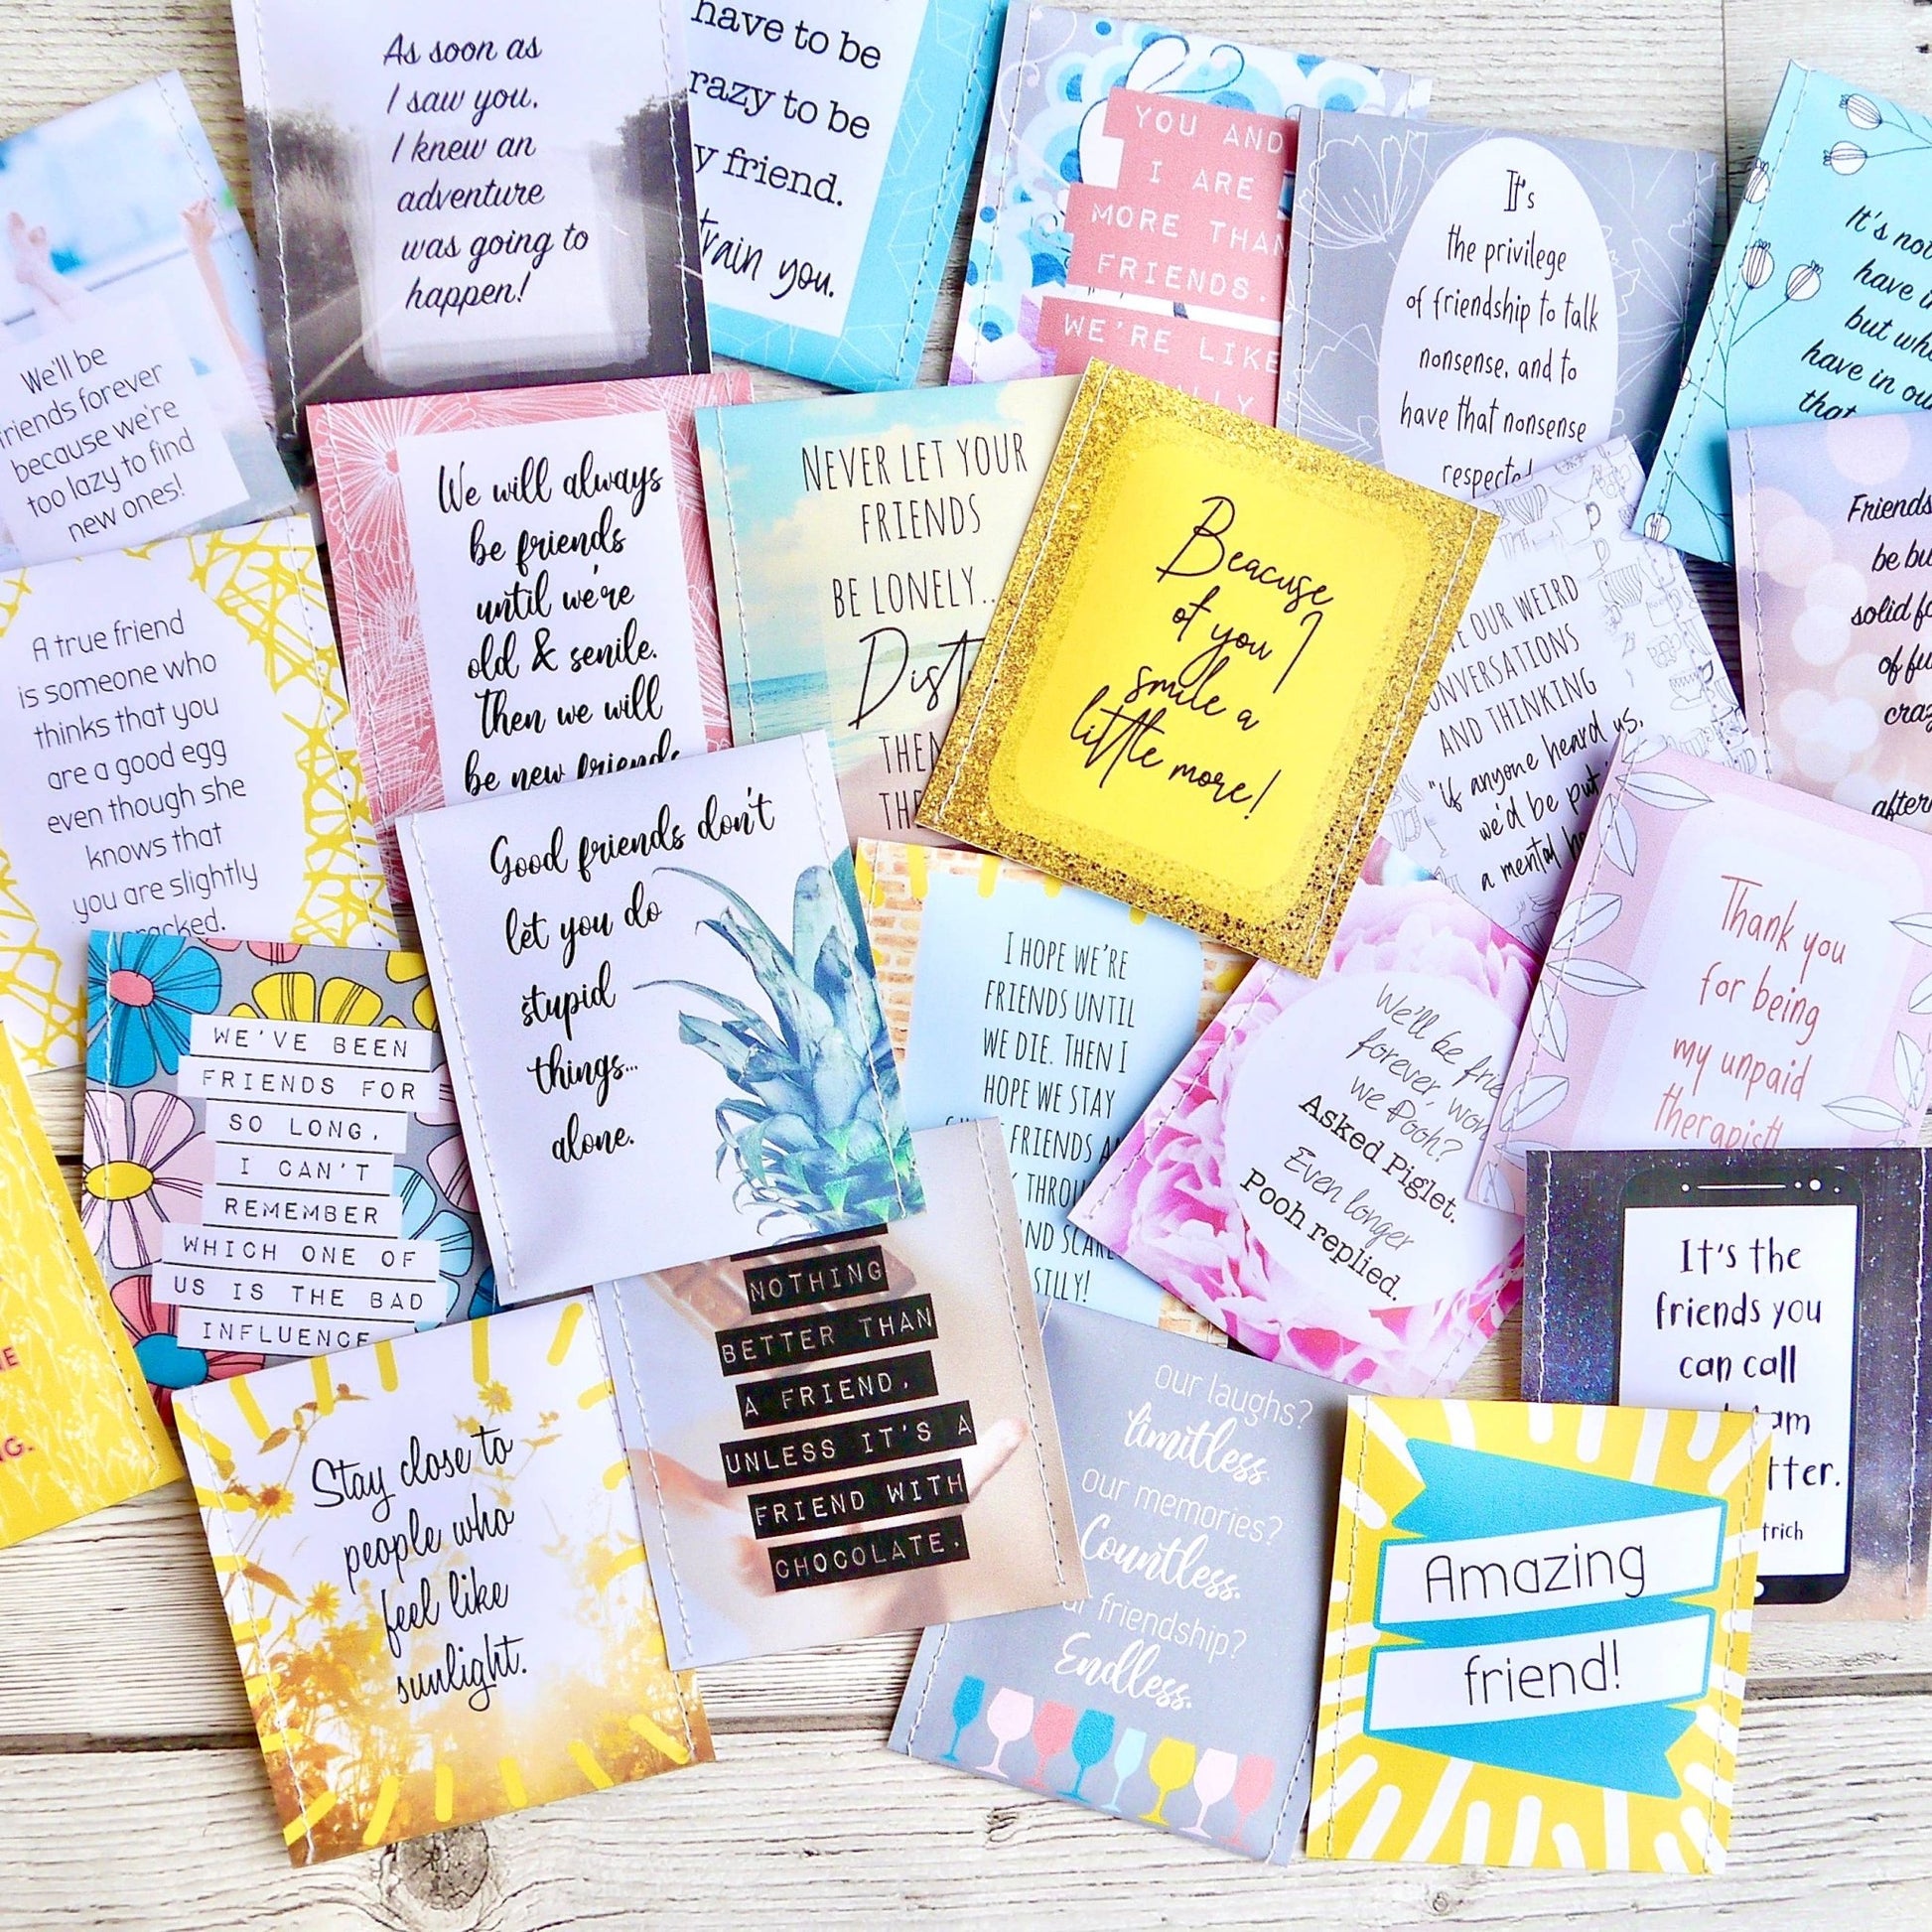 As soon as
I saw you,
I knew an
adventure
was going to
happen!
have to be
to be
friend.
train you.
YOU AND
I ARE
MORE THAN
FRIENDS.
WE'RE LIKE
It's
the privilege
of friendship to talk
nonsense, and to
have that nonsense
respected
It's not
have in
but
have in
that
We'll be
friends forever
because we're
too lazy to find
new ones!
We will always
be friends
until we're
old & senile.
Then we will
be new friends
NEVER LET YOUR
FRIENDS
BE LONELY...
Beacuse
of you I
smile a
little more!
OUR WEIRD
CONVERSATIONS
AND THINKING
"if anyone heard us,
we'd be put
a mental
Friends
be
solid
of
A true friend
is someone who
thinks that you
are a good egg
even though she
knows that
you are slightly
cracked.
Good friends don't
let you do
stupid
things...
alone.
I HOPE WE'RE
FRIENDS UNTIL
WE DIE. THEN I
HOPE WE STAY
FRIENDS
SILLY!
We'll be
forever, won
we Pooh?
Asked Piglet.
Even longer
Pooh replied.
Thank you
for being
my unpaid
therapist!
WE'VE BEEN
FRIENDS FOR
SO LONG,
I CAN'T
REMEMBER
WHICH ONE OF
US IS THE BAD
INFLUENCE
NOTHING
BETTER THAN
A FRIEND,
UNLESS IT'S A
FRIEND WITH
CHOCOLATE.
It's the
friends you
can call
am
Stay close to
people who
feel like
sunlight.
our laughs?
limitless
our memories?
Countless.
friendship?
Endless.
Amazing
friend!